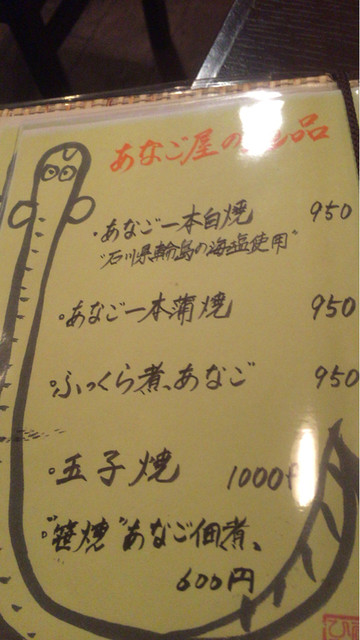 あなご屋の 品
・あなご一本白焼 950
"石川県輪島の海塩使用"
。あなご一本蒲焼 950
。ふっくら煮、あなご 950
。玉子焼 1000
。"笹焼"あなご佃煮、
600円